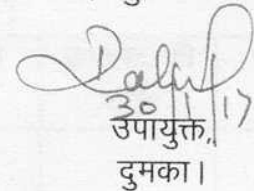 30/1/17
उपायुक्त,
दुमका।